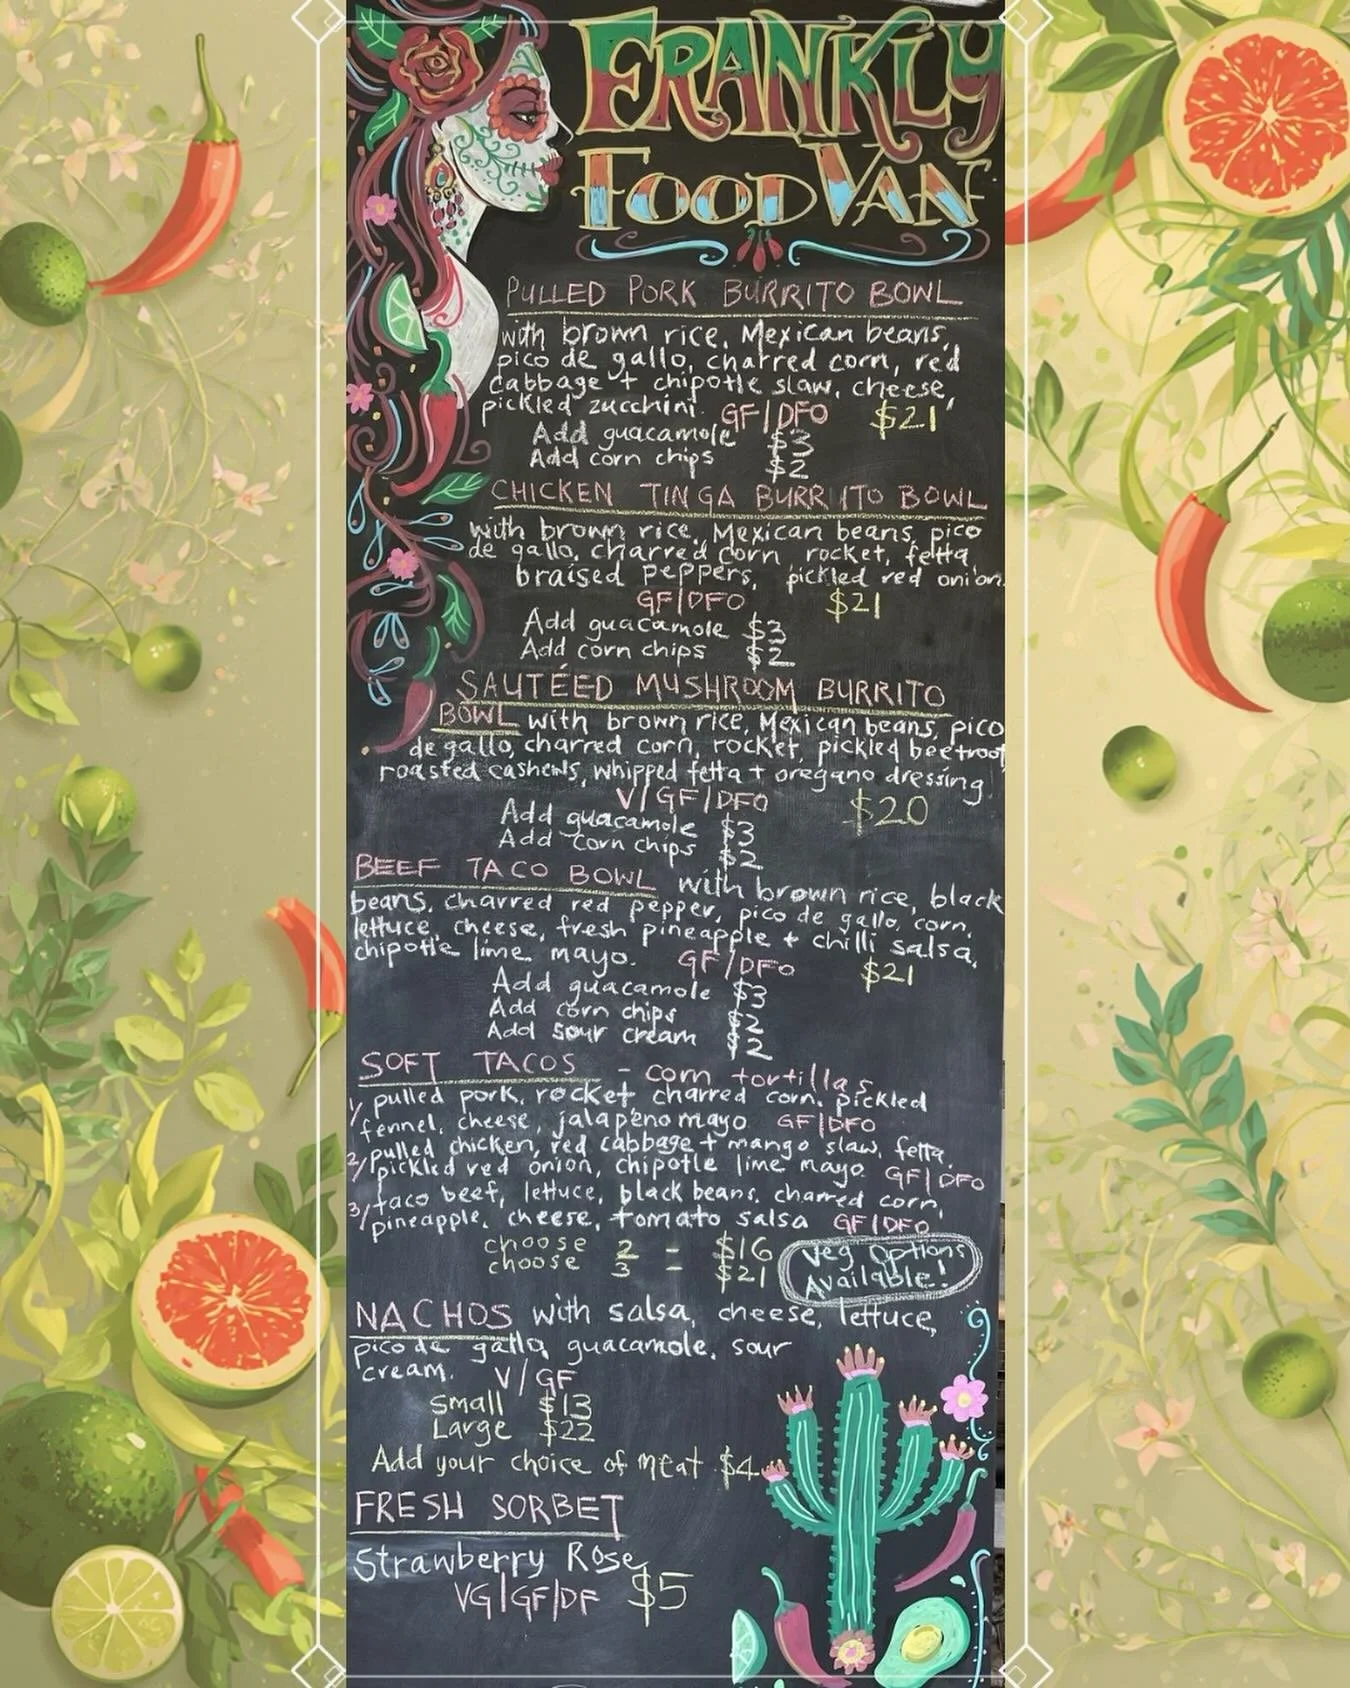 FRANKLY
FOOD VAN
PULLED PORK BURRITO BOWL
with brown rice, Mexican beans,
pico de gallo, charred corn, red
cabbage + chipotle slaw, cheese,
pickled zucchini. GF/DFO $21
Add guacamole $3
Add corn chips $2
CHICKEN TINGA BURRITO BOWL
with brown rice, Mexican beans, pico
de gallo, charred corn, rocket, fetta,
braised peppers, pickled red onion.
GF/DFO $21
Add guacamole $3
Add corn chips $2
SAUTÉED MUSHROOM BURRITO
BOWL with brown rice, Mexican beans, pico
de gallo, charred corn, rocket, pickled beetroot
roasted cashews, whipped fetta + oregano dressing
V/GF/DFO $20
Add guacamole $3
Add corn chips $2
BEEF TACO BOWL with brown rice, black
beans, charred red pepper, pico de gallo, corn,
lettuce, cheese, fresh pineapple + chilli salsa,
chipotle lime mayo. GF/DFO $21
Add guacamole $3
Add corn chips $2
Add sour cream $2
SOFT TACOS - corn tortillas
1/ pulled pork, rocket, charred corn, pickled
fennel, cheese, jalapeno mayo GF/DFO
2/ pulled chicken, red cabbage + mango slaw, fetta,
pickled red onion, chipotle lime mayo GF/DFO
3/ taco beef, lettuce, black beans, charred corn,
pineapple, cheese, tomato salsa GF/DFO
choose 2 = $16
choose 3 = $21
Veg Options
Available!
NACHOS with salsa, cheese, lettuce,
pico de gallo, guacamole, sour
cream. V/GF
Small $13
Large $22
Add your choice of meat $4
FRESH SORBET
Strawberry Rose
VG/GF/DF $5